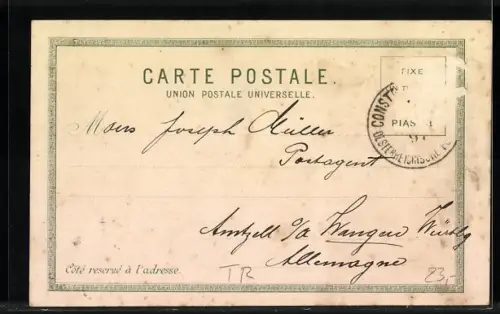 CARTE POSTALE.
UNION POSTALE UNIVERSELLE.
FIXE
PIAS
CONST
OESTERREICHISCHE
97
Joseph Müller
Postagent
Amtzell o/a Wangen Württbg
Allemagne
Côté reservé à l'adresse.
TR
23,-